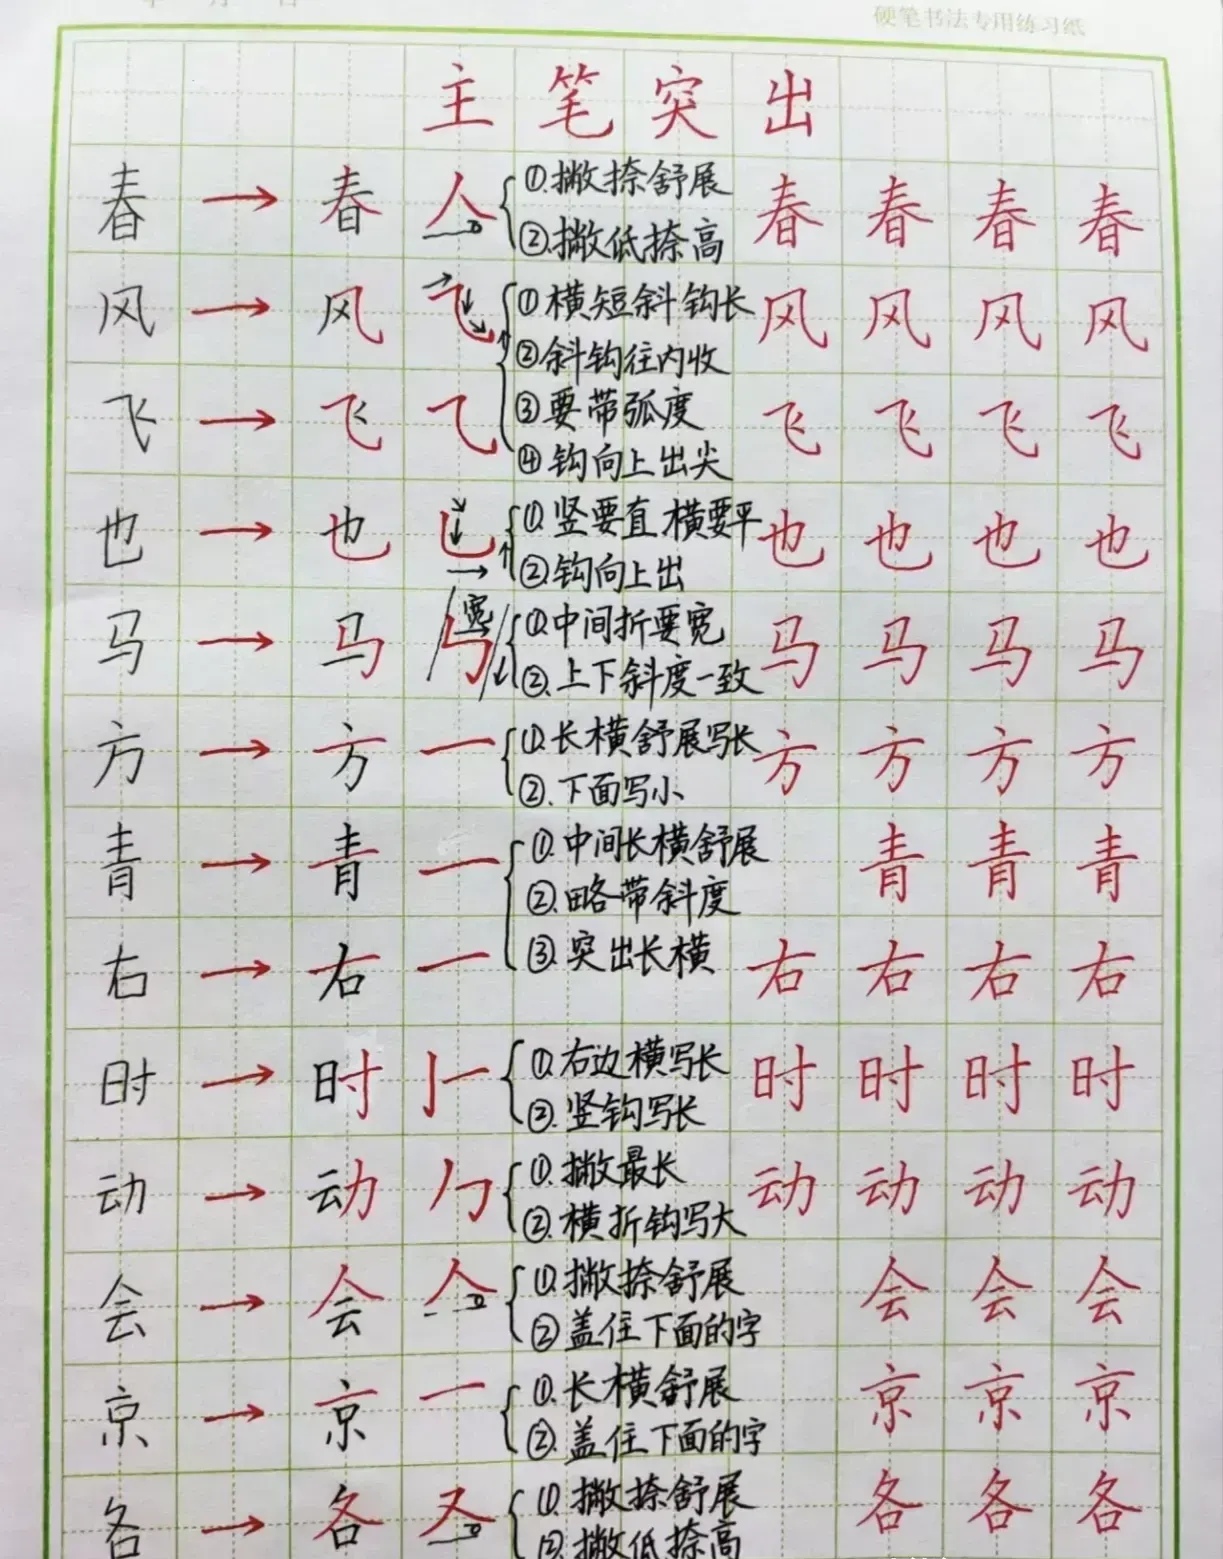 硬笔书法专用练习纸
主笔突出
春 → 春 人 ①.撇捺舒展 春 春 春 春
②.撇低捺高
风 → 风 ⺄ ①横短斜钩长 风 风 风 风
②斜钩往内收
飞 → 飞 ⺄ ③要带弧度 飞 飞 飞 飞
④钩向上出尖
也 → 也 乚 ①.竖要直 横要平 也 也 也 也
②.钩向上出
马 → 马 宽 ①.中间折要宽 马 马 马 马
②.上下斜度一致
方 → 方 一 ①.长横舒展写长 方 方 方 方
②.下面写小
青 → 青 一 ①.中间长横舒展 青 青 青
②.略带斜度
右 → 右 一 ③.突出长横 右 右 右 右
时 → 时 ①.右边横写长 时 时 时 时
②.竖钩写长
动 → 动 ①.撇最长 动 动 动 动
②.横折钩写大
会 → 会 ①.撇捺舒展 会 会 会
②盖住下面的字
京 → 京 一 ①.长横舒展 京 京 京
②.盖住下面的字
各 → 各 ①.撇捺舒展 各 各 各
②.撇低捺高